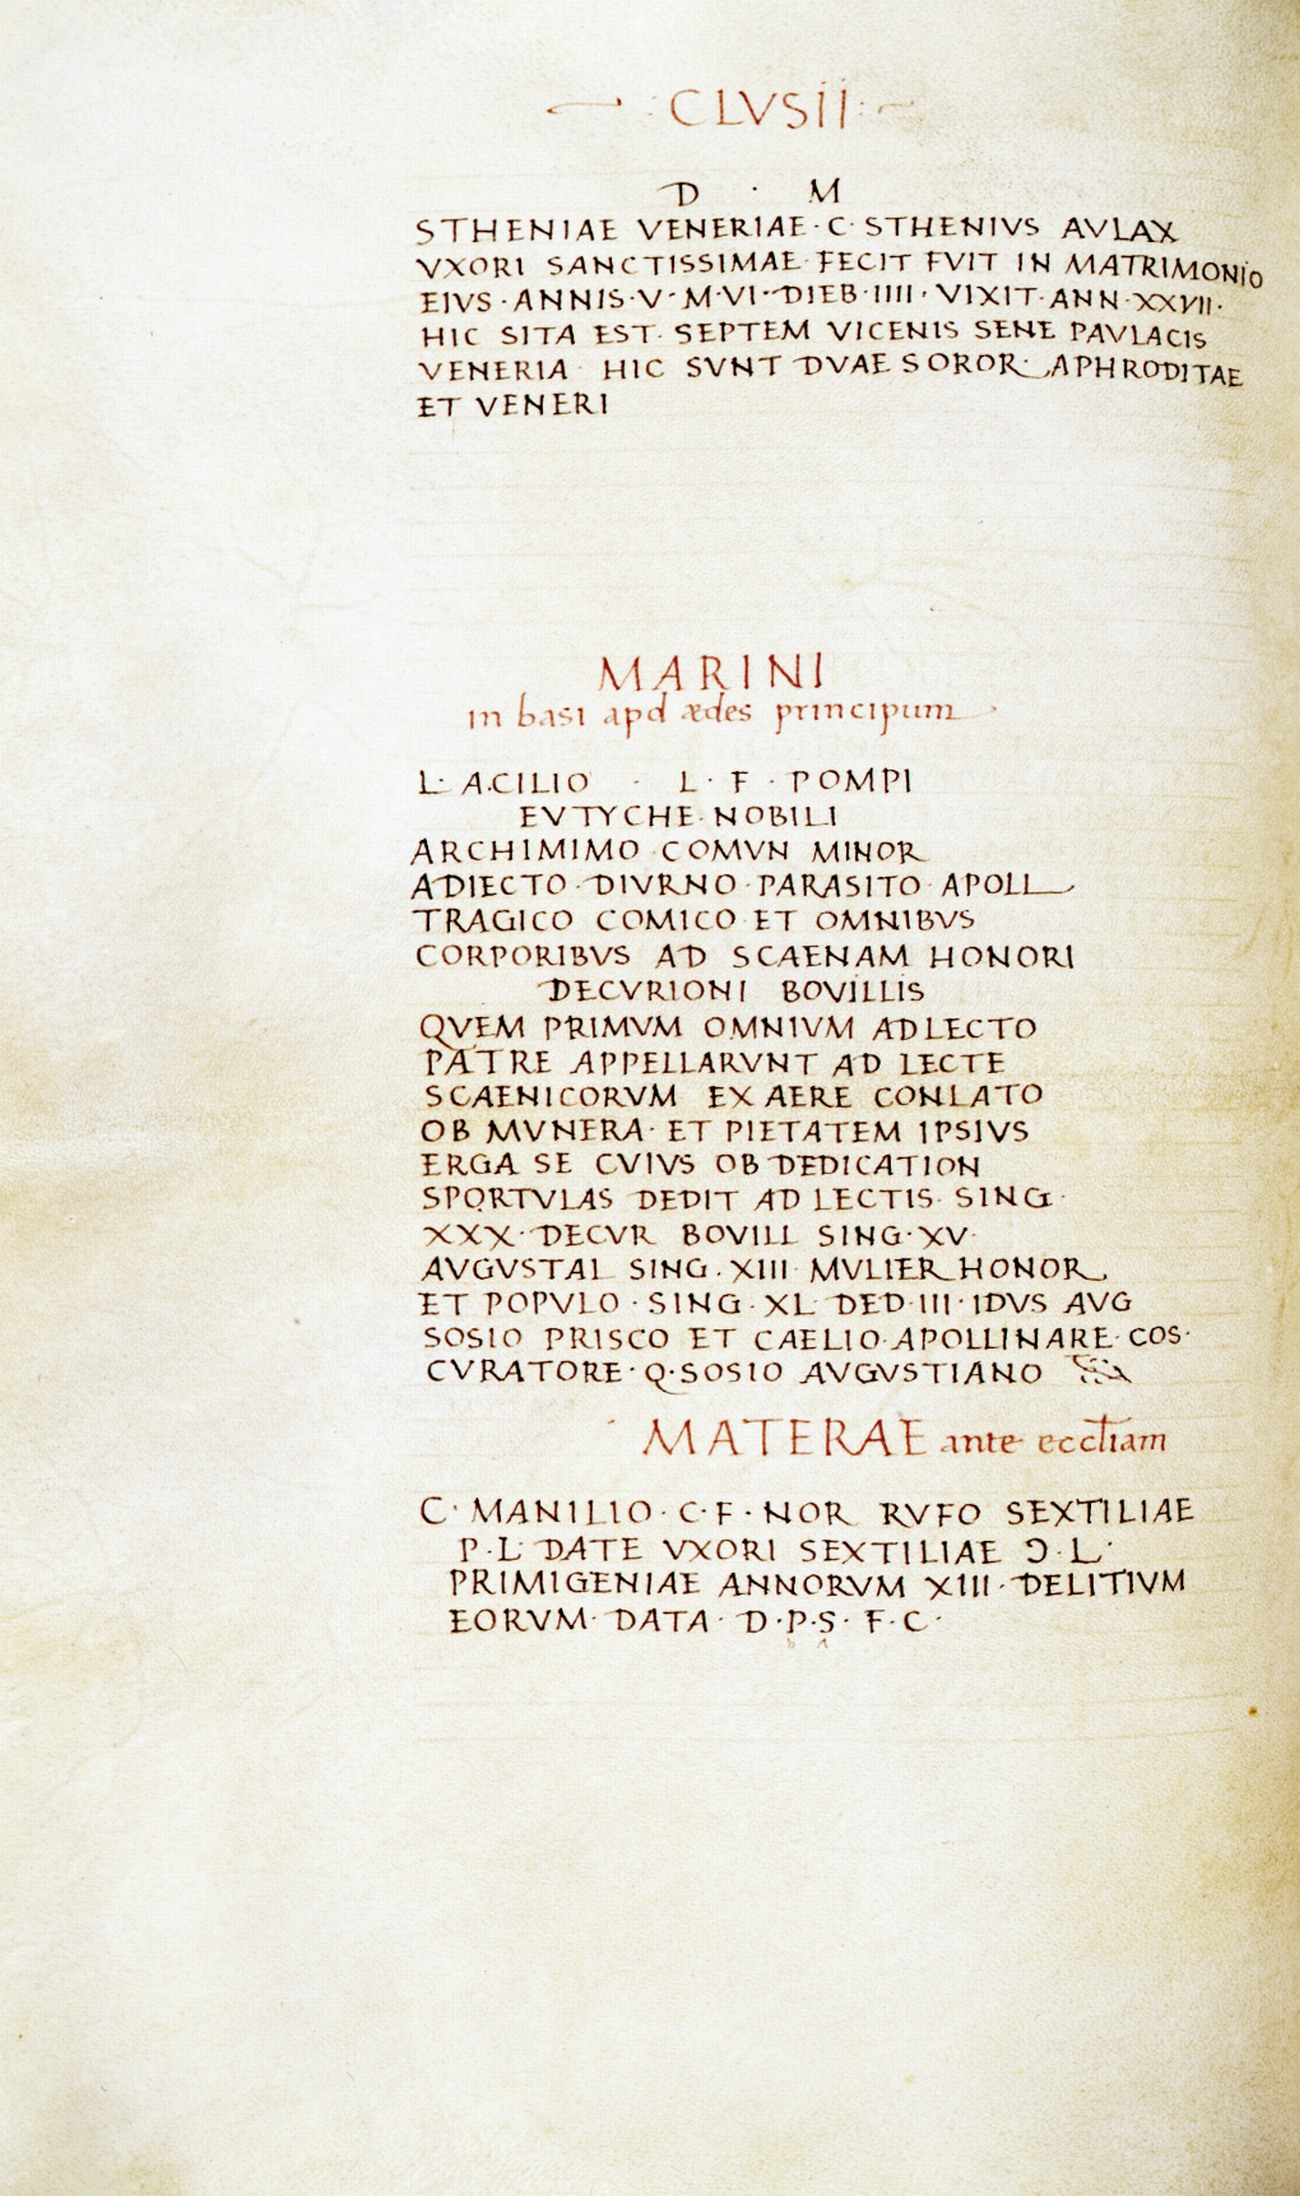 CLVSII
D · M
STHENIAE VENERIAE · C · STHENIVS AVLAX
VXORI SANCTISSIMAE FECIT FVIT IN MATRIMONIO
EIVS · ANNIS · V · M · VI · DIEB · IIII · VIXIT · ANN · XXVII ·
HIC SITA EST · SEPTEM VICENIS SENE PAVLACIS
VENERIA HIC SVNT DVAE SOROR · APHRODITAE
ET VENERI
MARINI
in basi apd ædes principum
L · A.CILIO · L · F · POMPI
EVTYCHE · NOBILI
ARCHIMIMO COMVN MINOR
ADIECTO · DIVRNO · PARASITO APOLL
TRAGICO COMICO ET OMNIBVS
CORPORIBVS AD SCAENAM HONORI
DECVRIONI BOVILLIS
QVEM PRIMVM OMNIVM ADLECTO
PATRE APPELLARVNT AD LECTE
SCAENICORVM EX AERE CONLATO
OB MVNERA · ET PIETATEM IPSIVS
ERGA SE CVIVS OB DEDICATION
SPORTVLAS DEDIT AD LECTIS · SING ·
XXX · DECVR BOVILL SING · XV ·
AVGVSTAL SING . XIII MVLIER HONOR
ET POPVLO · SING · XL DED · III · IDVS AVG
SOSIO PRISCO ET CAELIO · APOLLINARE · COS ·
CVRATORE · Q · SOSIO AVGVSTIANO
MATERAE ante eccliam
C · MANILIO · C · F · NOR RVFO SEXTILIAE
P · L · DATE VXORI SEXTILIAE Ɔ · L ·
PRIMIGENIAE ANNORVM XIII · DELITIVM
EORVM · DATA · D · P · S · F · C ·